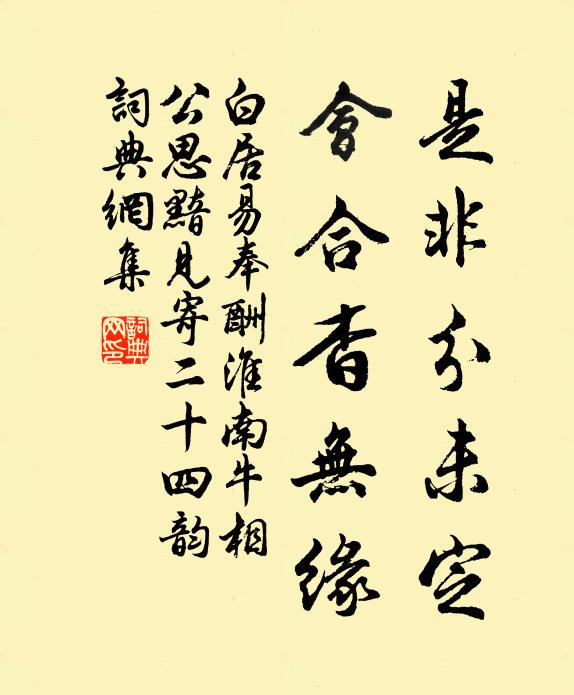 是非分未定
會合杳無緣
白居易奉酬淮南牛相
公思黯見寄二十四韵
詞典網集
詞典網印